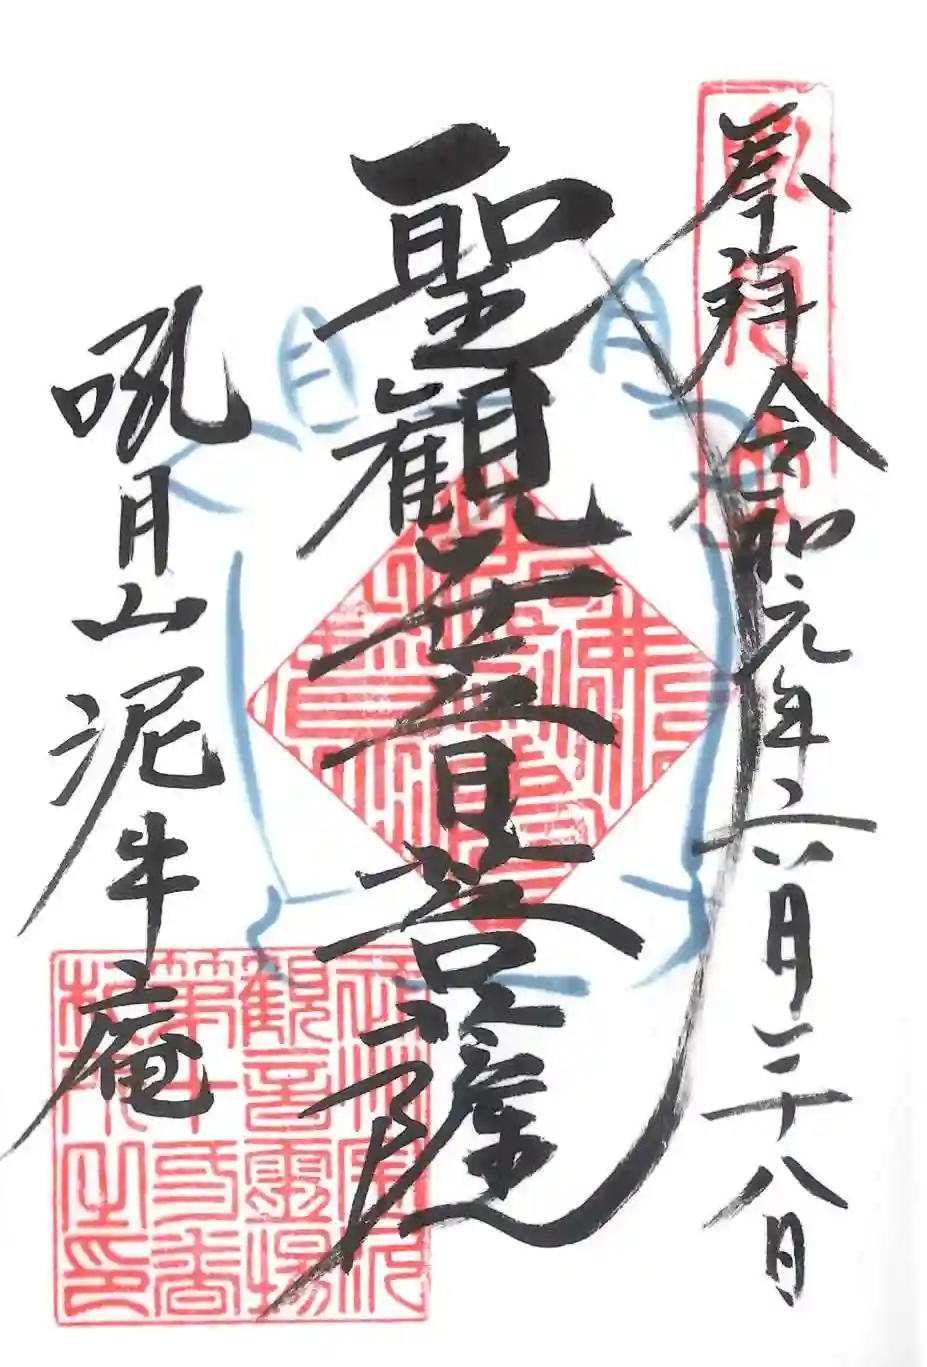 奉拝 令和元年六月二十八日
聖観世音菩薩
吼月山泥牛庵
吼月山
観音霊場
佛法僧寶